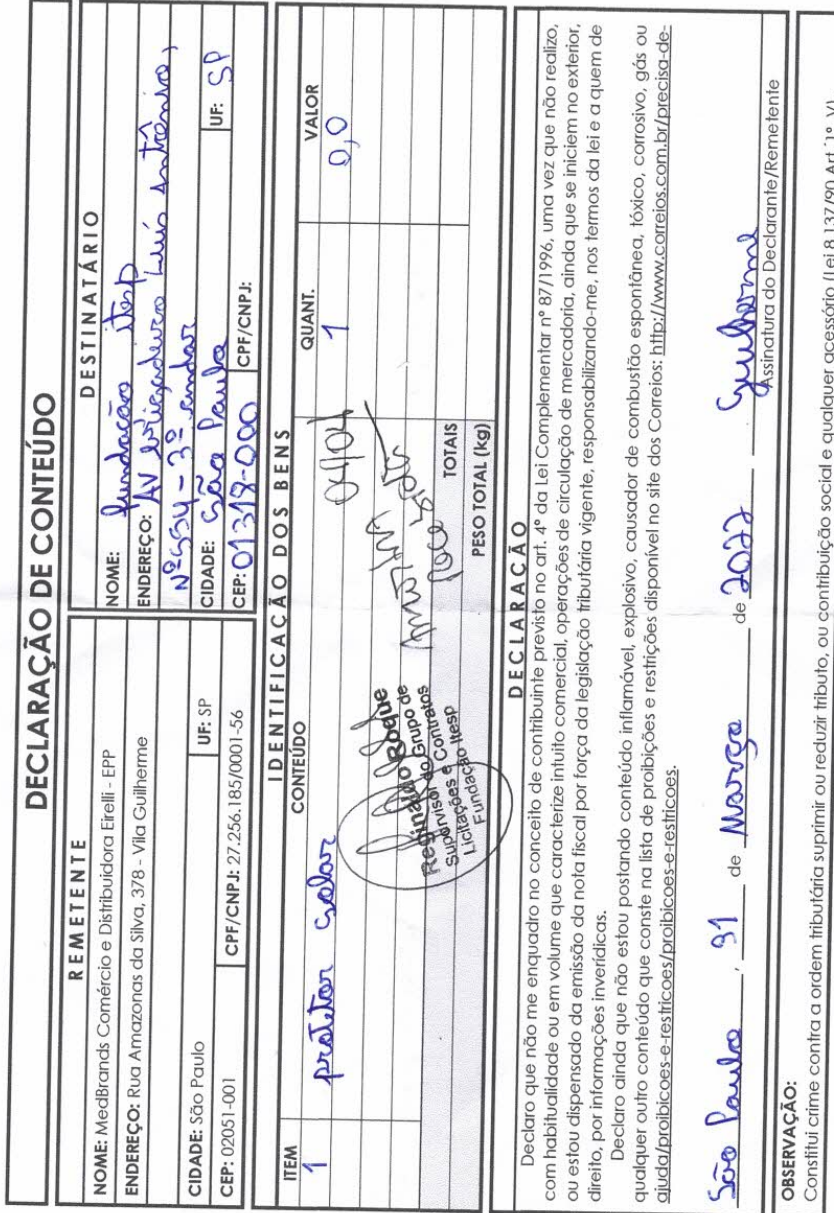 DECLARAÇÃO DE CONTEÚDO
REMETENTE
NOME: MedBrands Comércio e Distribuidora Eirelli - EPP
ENDEREÇO: Rua Amazonas da Silva, 378 - Vila Guilherme
CIDADE: São Paulo UF: SP
CEP: 02051-001 CPF/CNPJ: 27.256.185/0001-56
DESTINATÁRIO
NOME: fundação itesp
ENDEREÇO: AV brigadeiro Luís Antônio,
Nº 554 - 3º andar
CIDADE: São Paulo UF: SP
CEP: 01318-000 CPF/CNPJ:
IDENTIFICAÇÃO DOS BENS
ITEM CONTEÚDO QUANT. VALOR
1 protetor solar 1 0,0
04/04
Reginaldo Roque
Supervisor do Grupo de
Licitações e Contratos
Fundação Itesp
TOTAIS
PESO TOTAL (kg)
DECLARAÇÃO
Declaro que não me enquadro no conceito de contribuinte previsto no art. 4º da Lei Complementar nº 87/1996, uma vez que não realizo,
com habitualidade ou em volume que caracterize intuito comercial, operações de circulação de mercadoria, ainda que se iniciem no exterior,
ou estou dispensado da emissão da nota fiscal por força da legislação tributária vigente, responsabilizando-me, nos termos da lei e a quem de
direito, por informações inverídicas.
Declaro ainda que não estou postando conteúdo inflamável, explosivo, causador de combustão espontânea, tóxico, corrosivo, gás ou
qualquer outro conteúdo que conste na lista de proibições e restrições disponível no site dos Correios: http://www.correios.com.br/precisa-de-
ajuda/proibicoes-e-restricoes/proibicoes-e-restricoes.
São Paulo, 31 de Março de 2022 Guilherme
Assinatura do Declarante/Remetente
OBSERVAÇÃO:
Constitui crime contra a ordem tributária suprimir ou reduzir tributo, ou contribuição social e qualquer acessório (Lei 8.137/90 Art. 1º, V).